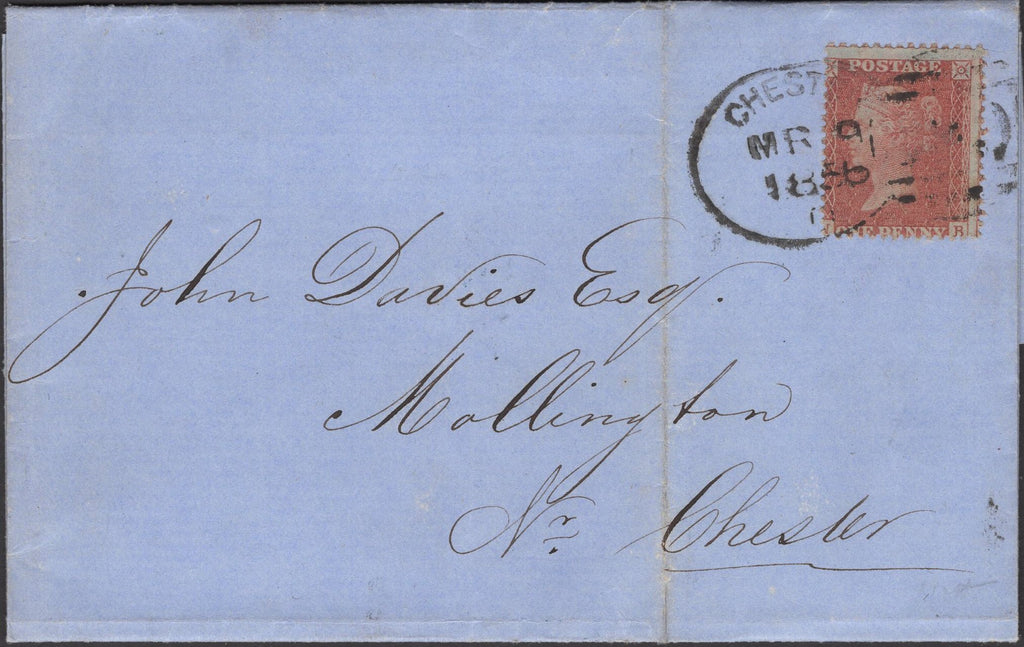 CHEST
MR 9
1856
POSTAGE
PENNY
B
John Davies Esq.
Mollington
Nr Chester